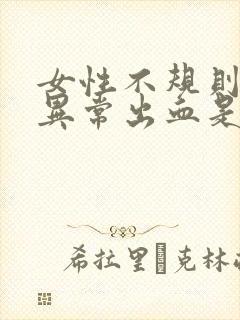 女性不規則
異常出血是
希拉里 克林